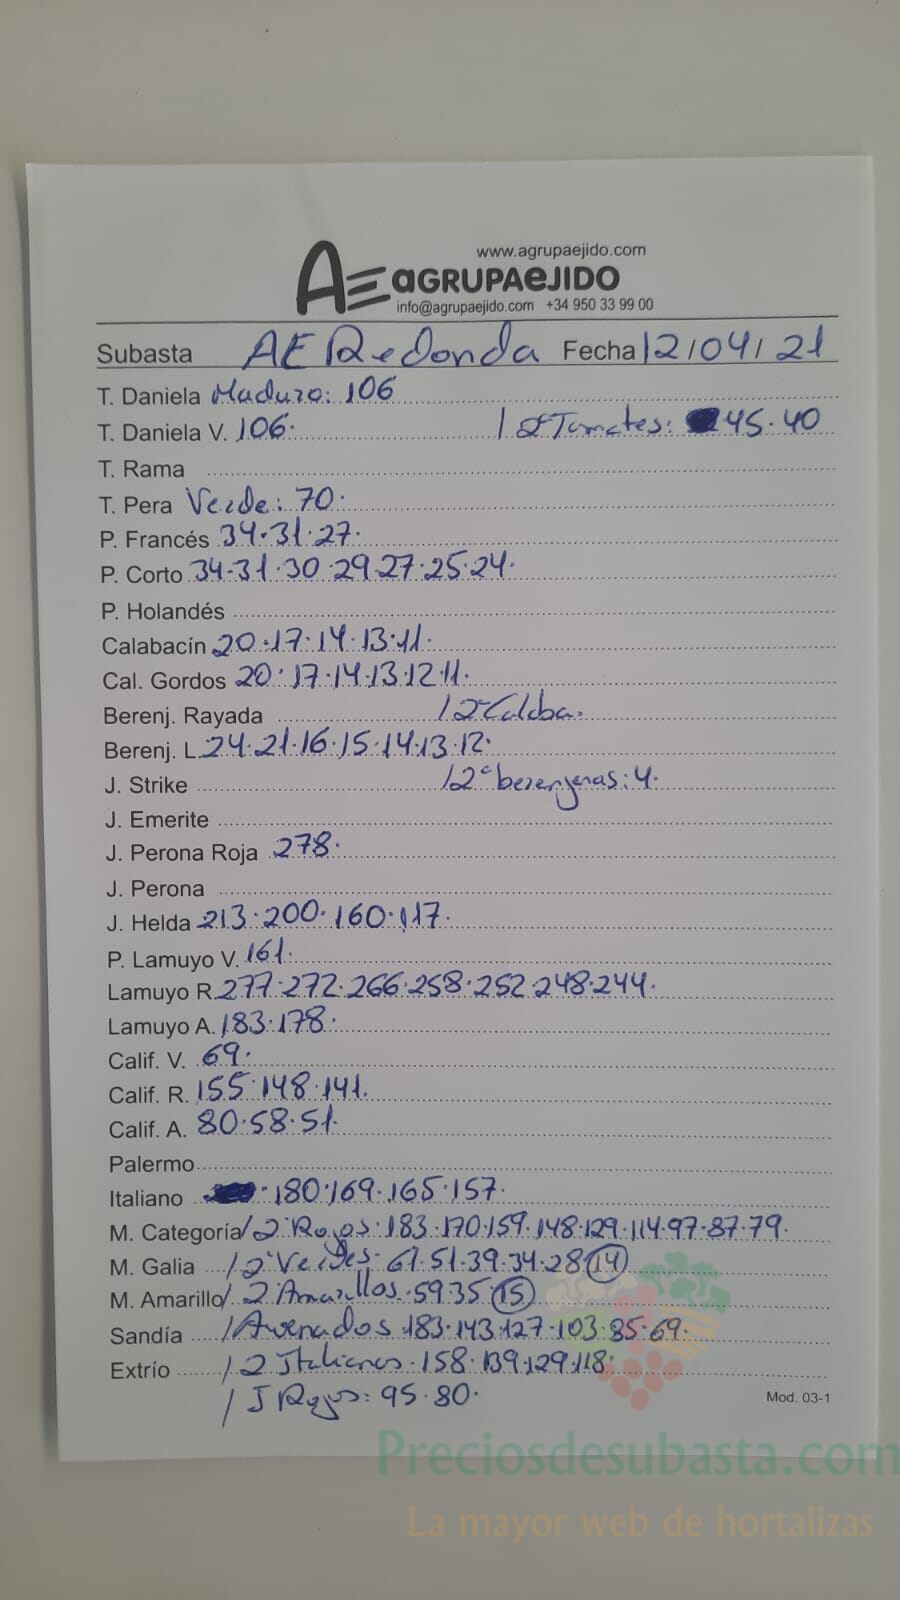 www.agrupaejido.com
AE aGRUPAeJIDO
info@agrupaejido.com +34 950 33 99 00
Subasta AE Redonda Fecha 12/04/21
T. Daniela Maduro: 106
T. Daniela V. 106. / 2ª Tomates: 45.40
T. Rama
T. Pera Verde: 70.
P. Francés 34.31.27.
P. Corto 34.31.30.29.27.25.24.
P. Holandés
Calabacín 20.17.14.13.11.
Cal. Gordos 20.17.14.13.12.11.
Berenj. Rayada / 2ª Calaba.
Berenj. L. 24.21.16.15.14.13.12.
J. Strike / 2ª berenjenas: 4.
J. Emerite
J. Perona Roja 278.
J. Perona
J. Helda 213.200.160.117.
P. Lamuyo V. 161.
Lamuyo R. 277.272.266.258.252.248.244.
Lamuyo A. 183.178.
Calif. V. 69.
Calif. R. 155.148.141.
Calif. A. 80.58.51.
Palermo
Italiano .180.169.165.157.
M. Categoría / 2ª Rojos.183.170.159.148.129.114.97.87.79.
M. Galia / 2ª Verdes.61.51.39.34.28 14
M. Amarillo / 2 Amarillos.59.35 15
Sandía / Avenados.183.143.127.103.85.69.
Extrío / 2 Italianos.158.139.129.118.
/ J Rojos: 95.80.
Mod. 03-1
Preciosdesubasta.com
La mayor web de hortalizas